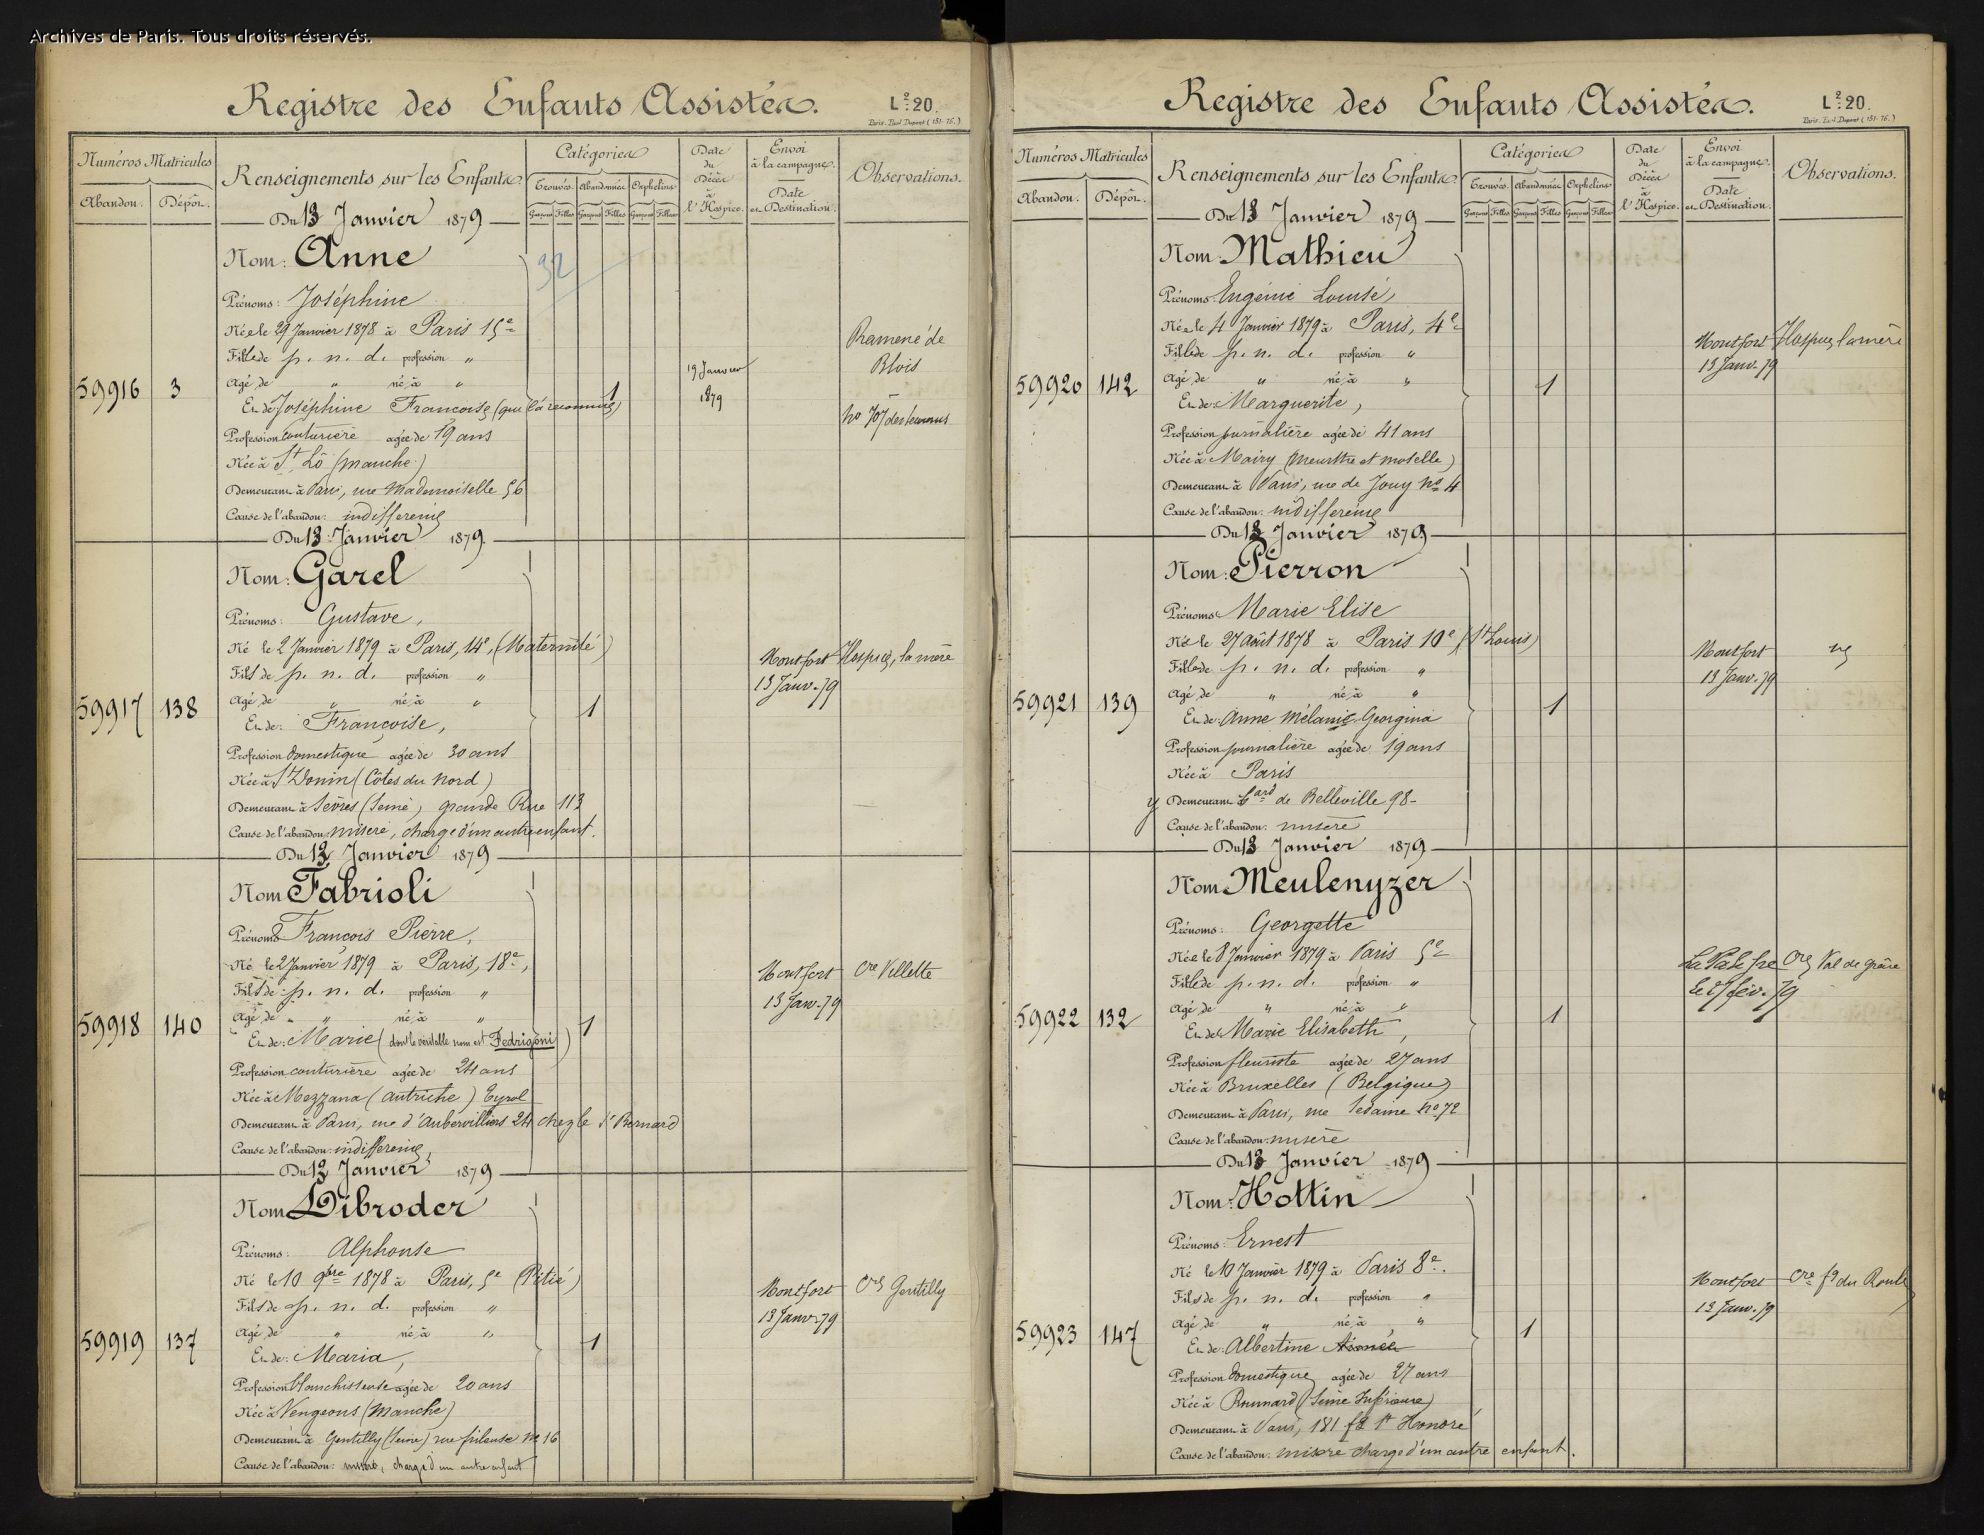 Archives de Paris. Tous droits réservés.
Registre des Enfants Assistés.
L² : 20.
Paris. Paul Dupont (151-76.)
Numéros Matricules
Abandon. Dépôt.
Renseignements sur les Enfants.
Catégories
Trouvés. Abandonnés Orphelins
Garçons Filles Garçons Filles Garçons Filles
Date du Décès à l'Hospice.
Envoi à la campagne.
Date et Destination.
Observations.
Du 13 Janvier 1879
Nom: Anne
32
Prénoms: Joséphine
Née le 29 Janvier 1878 à Paris 15e
Fille de p. n. d. profession "
Agé de " né à "
59916 3
1
19 Janvier 1879
Ramené de Blois
no 707 des
Et de Joséphine Françoise (qui l'a reconnue)
Profession couturière agée de 19 ans
Née à St Lô (manche)
Demeurant à Paris, rue Mademoiselle 56
Cause de l'abandon: indifférence
Du 13 Janvier 1879
Nom: Garel
Prénoms: Gustave,
Né le 2 Janvier 1879 à Paris, 14e, (Maternité)
Fils de p. n. d. profession "
Agé de " né à "
59917 138
1
Montfort 13 Janv. 79
Hospice, la mère
Et de: Françoise,
Profession domestique agée de 30 ans
Née à St Donin (Côtes du Nord)
Demeurant à Sèvres (Seine), grande Rue 113
Cause de l'abandon: misère, charge d'un autre enfant.
Du 13 Janvier 1879
Nom Fabrioli
Prénoms François Pierre,
Né le 2 Janvier 1879 à Paris, 18e,
Fils de p. n. d. profession "
Agé de " né à "
59918 140
1
Montfort 13 Janv. 79
Cre Villette
Et de: Marie (dont le véritable nom est Fedrigoni)
Profession couturière agée de 24 ans
Née à Mezzana (Autriche) Tyrol
Demeurant à Paris, rue d'Aubervilliers 24 chez le Sr Bernard
Cause de l'abandon: indifférence,
Du 13 Janvier 1879
Nom Dibroder
Prénoms: Alphonse
Né le 10 9bre 1878 à Paris, 5e (Pitié)
Fils de p. n. d. profession "
Agé de " né à "
59919 137
1
Montfort 13 Janv. 79
Cre Gentilly
Et de: Maria,
Profession blanchisseuse agée de 20 ans
Née à Vengeons (Manche)
Demeurant à Gentilly (Seine) rue frileuse no 16
Cause de l'abandon: misère, charge d'un autre enfant
Registre des Enfants Assistés.
L² : 20.
Paris. Paul Dupont (151-76.)
Numéros Matricules
Abandon. Dépôt.
Renseignements sur les Enfants.
Catégories
Trouvés. Abandonnés Orphelins
Garçons Filles Garçons Filles Garçons Filles
Date du Décès à l'Hospice.
Envoi à la campagne.
Date et Destination.
Observations.
Du 13 Janvier 1879
Nom Mathieu
Prénoms. Eugénie Louise,
Née le 4 Janvier 1879 à Paris, 4e
Fille de p. n. d. profession "
Agé de " né à "
59920 142
1
Montfort 13 Janv. 79
Hospice, la mère
Et de: Marguerite,
Profession journalière agée de 41 ans
Née à Mairy (Meurthe et moselle)
Demeurant à Paris, rue de Jouy no 4
Cause de l'abandon: indifférence
Du 13 Janvier 1879
Nom: Pierron
Prénoms Marie Elise
Née le 27 août 1878 à Paris 10e (St Louis)
Fille de p. n. d. profession "
Agé de " né à "
59921 139
1
Montfort 13 Janv. 79
Et de: Anne Mélanie Georgina
Profession journalière agée de 19 ans
Née à Paris
y Demeurant bard de Belleville 98
Cause de l'abandon: misère
Du 13 Janvier 1879
Nom Meulenyzer
Prénoms: Georgette
Née le 8 Janvier 1879 à Paris 5e
Fille de p. n. d. profession "
Agé de " né à "
59922 132
1
le 27 fév. 79
Cre Val de Grâce
Et de Marie Elisabeth,
Profession fleuriste agée de 27 ans
Née à Bruxelles (Belgique)
Demeurant à Paris, rue Sedaine no 72
Cause de l'abandon: misère
Du 13 Janvier 1879
Nom: Hottin
Prénoms: Ernest
Né le 10 Janvier 1879 à Paris 8e.
Fils de p. n. d. profession "
Agé de " né à "
59923 147
1
Montfort 13 Janv. 79
Cre fg du Roule
Et de: Albertine Aimée
Profession domestique, agée de 27 ans
Née à (Seine Inférieure)
Demeurant à Paris, 181 fg St Honoré
Cause de l'abandon: misère charge d'un autre enfant.